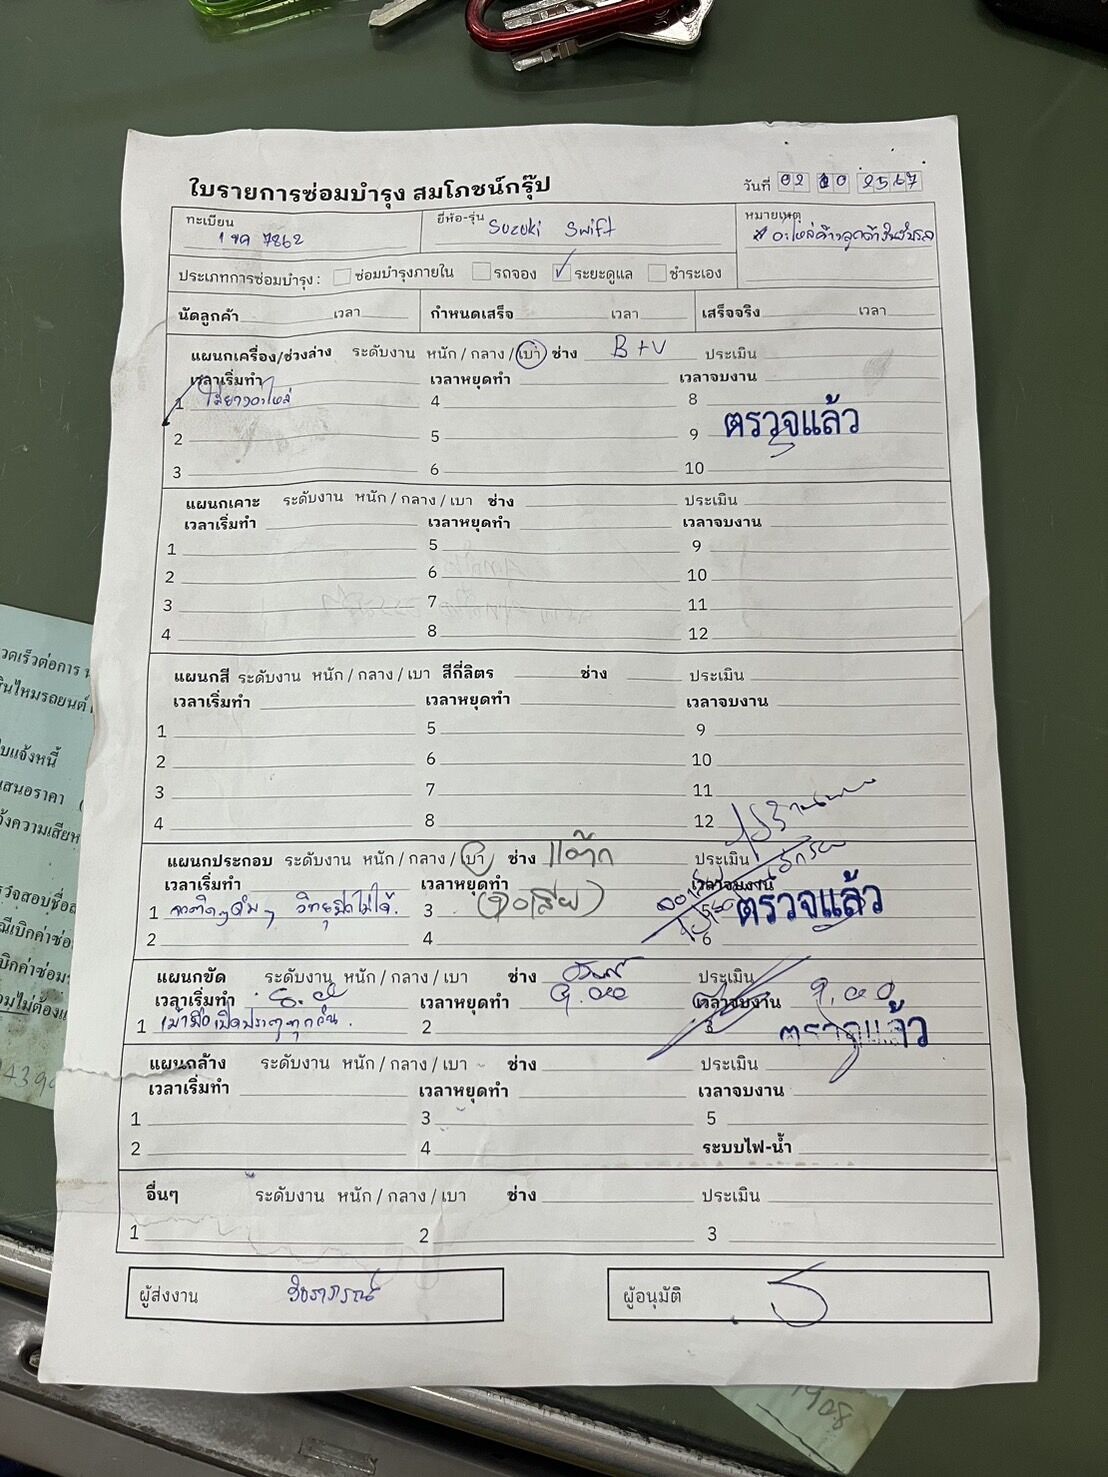 ใบรายการซ่อมบำรุง สมโภชน์กรุ๊ป
วันที่ 02 10 2567
ทะเบียน 1 ขค 7862
ยี่ห้อ-รุ่น Suzuki Swift
หมายเหตุ
ประเภทการซ่อมบำรุง : ซ่อมบำรุงภายใน รถจอง ✓ ระยะดูแล ชำระเอง
นัดลูกค้า เวลา กำหนดเสร็จ เวลา เสร็จจริง เวลา
แผนกเครื่อง/ช่วงล่าง ระดับงาน หนัก / กลาง / เบา ช่าง B+V ประเมิน
เวลาเริ่มทำ เวลาหยุดทำ เวลาจบงาน
1 4 8
ตรวจแล้ว
2 5 9
3 6 10
แผนกเคาะ ระดับงาน หนัก / กลาง / เบา ช่าง ประเมิน
เวลาเริ่มทำ เวลาหยุดทำ เวลาจบงาน
1 5 9
2 6 10
3 7 11
4 8 12
แผนกสี ระดับงาน หนัก / กลาง / เบา สีกี่ลิตร ช่าง ประเมิน
เวลาเริ่มทำ เวลาหยุดทำ เวลาจบงาน
1 5 9
2 6 10
3 7 11
4 8 12
แผนกประกอบ ระดับงาน หนัก / กลาง / เบา ช่าง ประเมิน
เวลาเริ่มทำ เวลาหยุดทำ (จอเสีย) เวลาจบงาน
1 จอติดๆดับๆ วิทยุเปิดไม่ได้. 3 5 ตรวจแล้ว
2 4 6
แผนกขัด ระดับงาน หนัก / กลาง / เบา ช่าง ประเมิน
เวลาเริ่มทำ เวลาหยุดทำ 9.00 เวลาจบงาน 9.00
1 2 3 ตรวจแล้ว
แผนกล้าง ระดับงาน หนัก / กลาง / เบา ช่าง ประเมิน
เวลาเริ่มทำ เวลาหยุดทำ เวลาจบงาน
1 3 5
2 4 ระบบไฟ-น้ำ
อื่นๆ ระดับงาน หนัก / กลาง / เบา ช่าง ประเมิน
1 2 3
ผู้ส่งงาน
ผู้อนุมัติ
1908